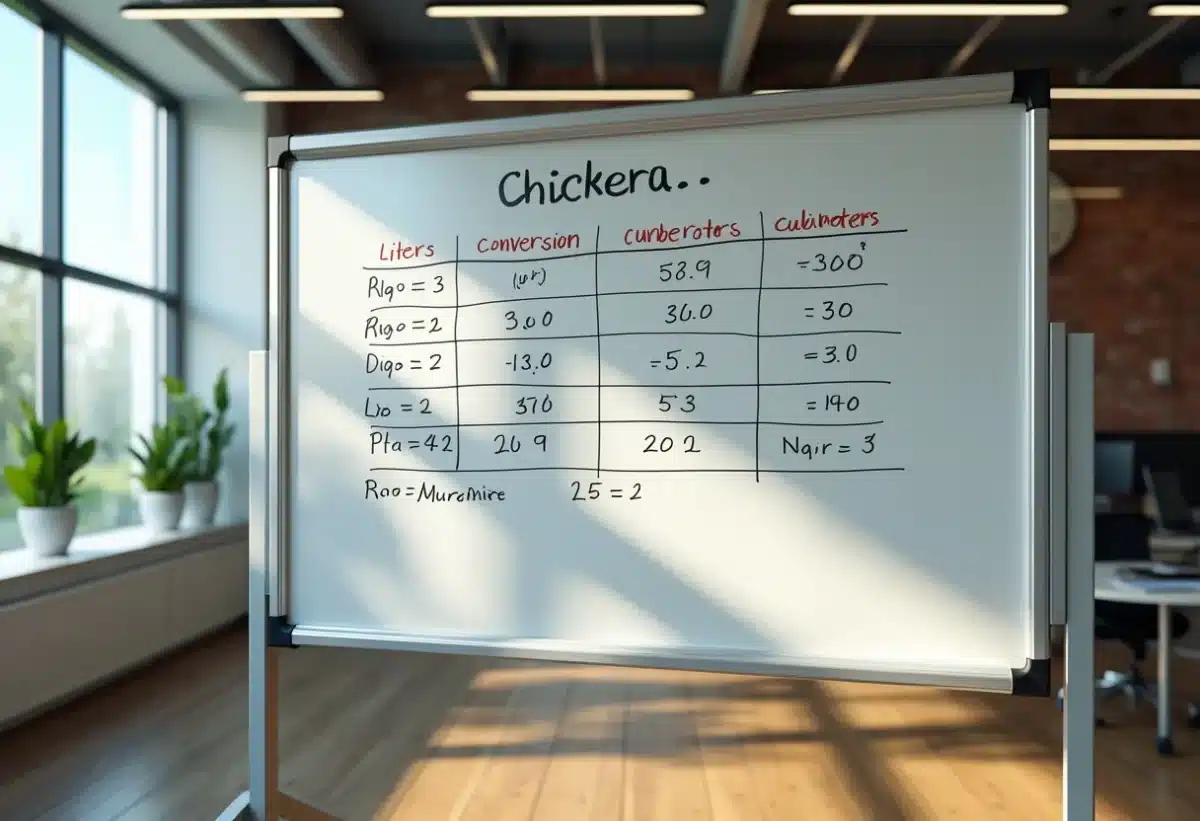 Chickera..
Liters conversion cunberotors culimoters
Rlgo = 3 58.9 =300°
Rigo = 2 3.00 30.0 = 30
Digo = 2 -13.0 =5.2 =3.0
Lio = 2 370 53 = 190
Pta = 42 20 9 20 2 Nqir = 3
Rao = Muremire 25 = 2